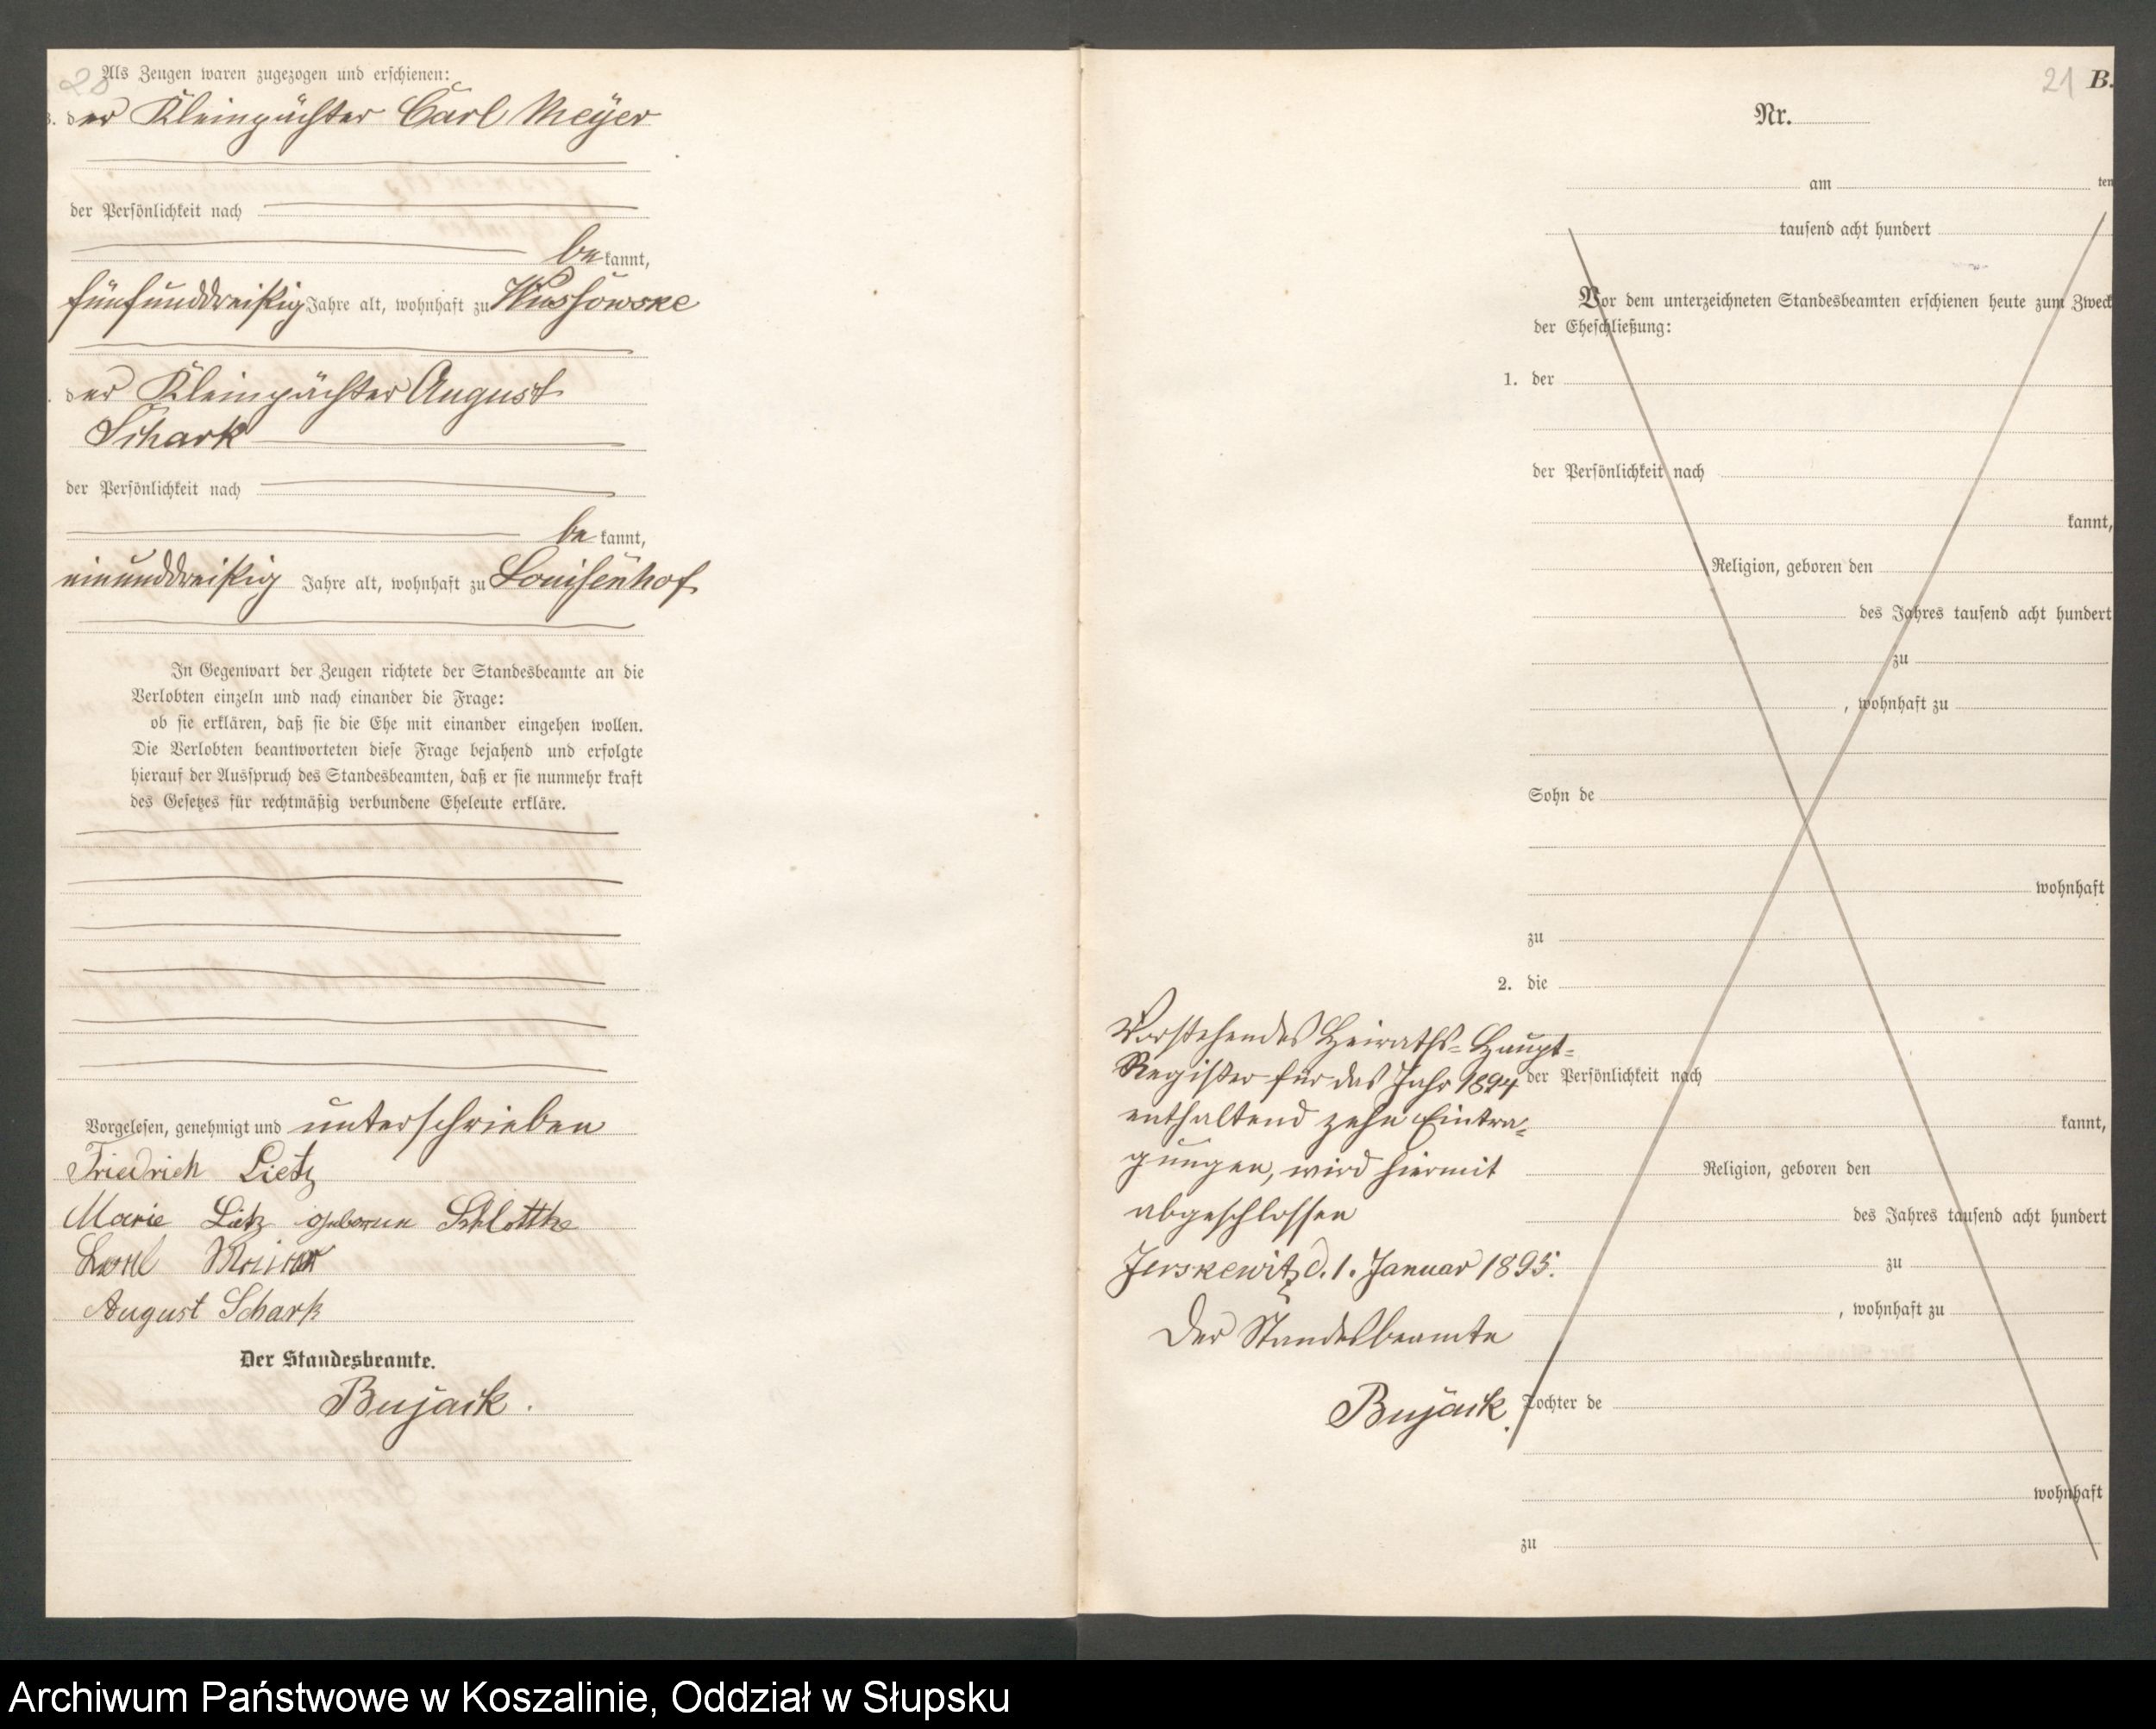 20
Als Zeugen waren zugezogen und erschienen:
3. der Kleinpächter Carl Meyer
der Persönlichkeit nach
be kannt,
fünfunddreißig Jahre alt, wohnhaft zu Wussowske
der Kleinpächter August
Schark
der Persönlichkeit nach
be kannt,
einunddreißig Jahre alt, wohnhaft zu Louisenhof
In Gegenwart der Zeugen richtete der Standesbeamte an die
Verlobten einzeln und nach einander die Frage:
ob sie erklären, daß sie die Ehe mit einander eingehen wollen.
Die Verlobten beantworteten diese Frage bejahend und erfolgte
hierauf der Ausspruch des Standesbeamten, daß er sie nunmehr kraft
des Gesetzes für rechtmäßig verbundene Eheleute erkläre.
Vorgelesen, genehmigt und unterschrieben
Friedrich Lietz
Marie Lietz geborene Schlottke
Karl
August Schark
Der Standesbeamte.
Bujack.
21 B.
Nr.
am ten
tausend acht hundert
Vor dem unterzeichneten Standesbeamten erschienen heute zum Zweck
der Eheschließung:
1. der
der Persönlichkeit nach
kannt,
Religion, geboren den
des Jahres tausend acht hundert
zu
, wohnhaft zu
Sohn de
wohnhaft
zu
2. die
der Persönlichkeit nach
kannt,
Religion, geboren den
des Jahres tausend acht hundert
zu
, wohnhaft zu
Tochter de
wohnhaft
zu
Vorstehendes Heiraths-Haupt-
Register für das Jahr 1894
enthaltend zehn Eintra-
gungen, wird hiermit
abgeschlossen
Jerskewitz d. 1. Januar 1895.
Der Standesbeamte
Bujack.
Archiwum Państwowe w Koszalinie, Oddział w Słupsku